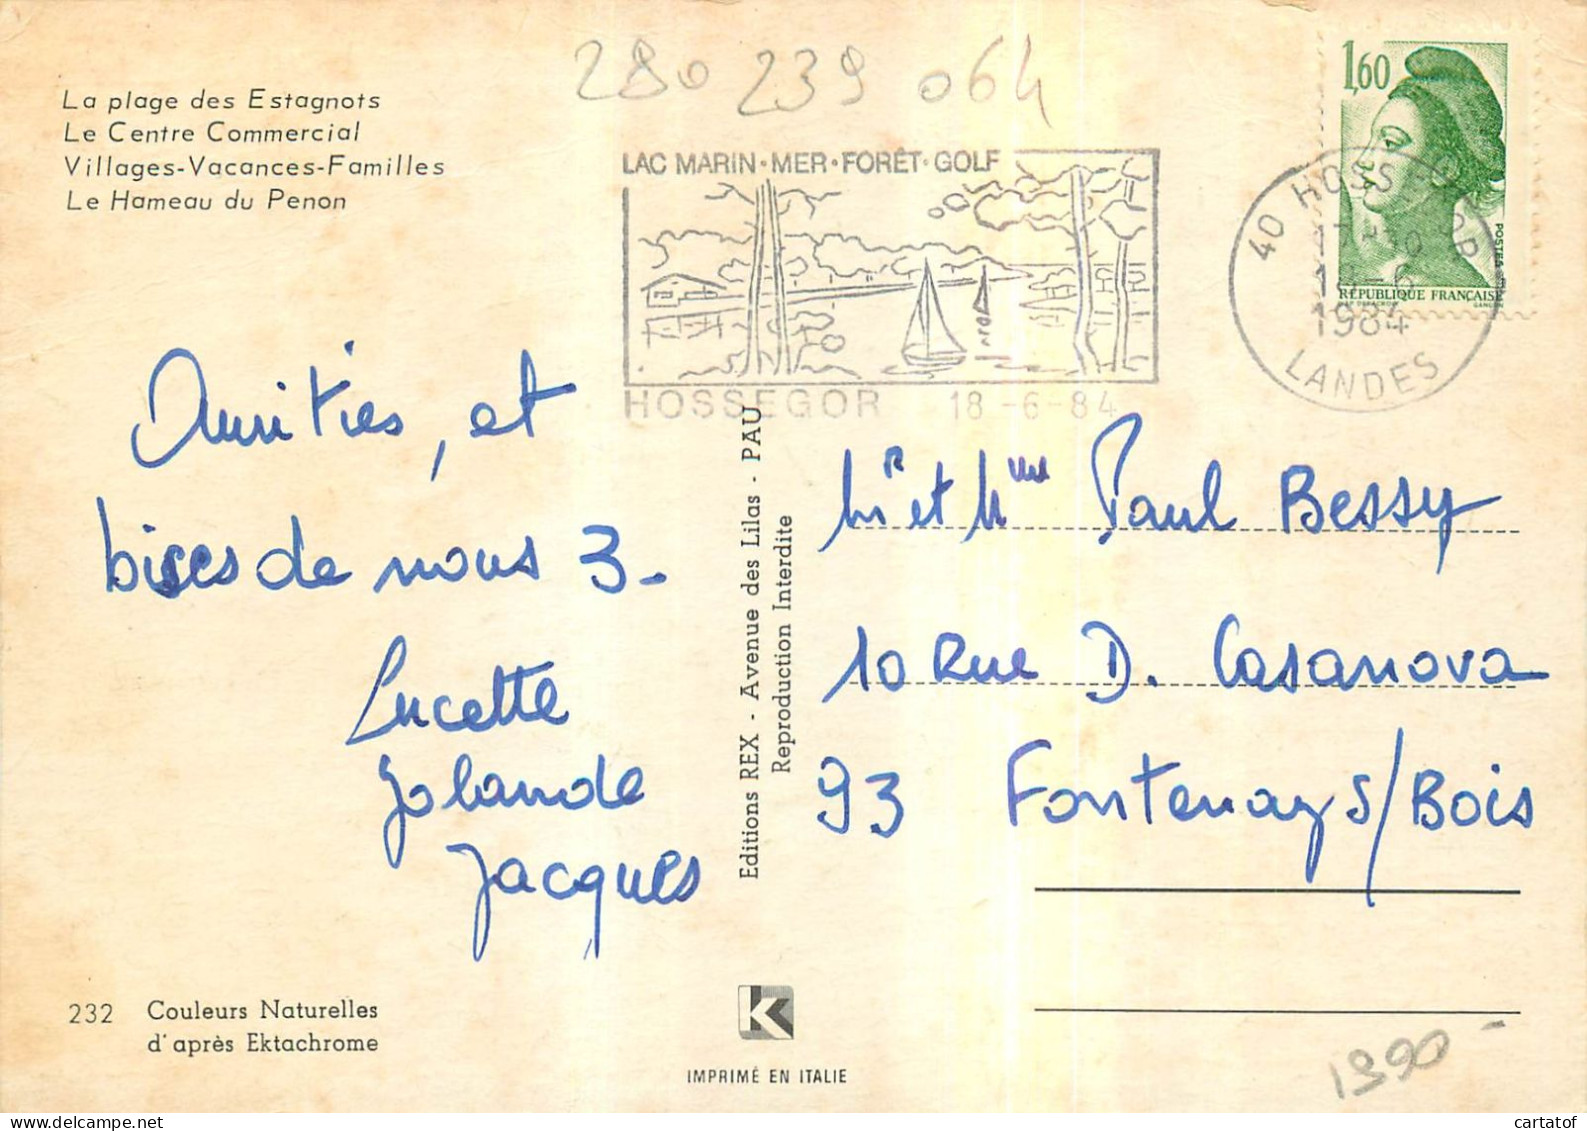 280 239 064
La plage des Estagnots
Le Centre Commercial
Villages-Vacances-Familles
Le Hameau du Penon
LAC MARIN·MER·FORÊT·GOLF
HOSSEGOR 18-6-84
1,60
POSTES
RÉPUBLIQUE FRANÇAISE
40 HOSSEGOR PP
18-6
1984
LANDES
Amitiés, et
bises de nous 3-
Lucette
Jolande
Jacques
Editions REX - Avenue des Lilas - PAU
Reproduction Interdite
Mr et Mme Paul Bessy
10 Rue D. Casanova
93 Fontenay s/Bois
232 Couleurs Naturelles
d'après Ektachrome
K
IMPRIMÉ EN ITALIE
1390-
cartatof